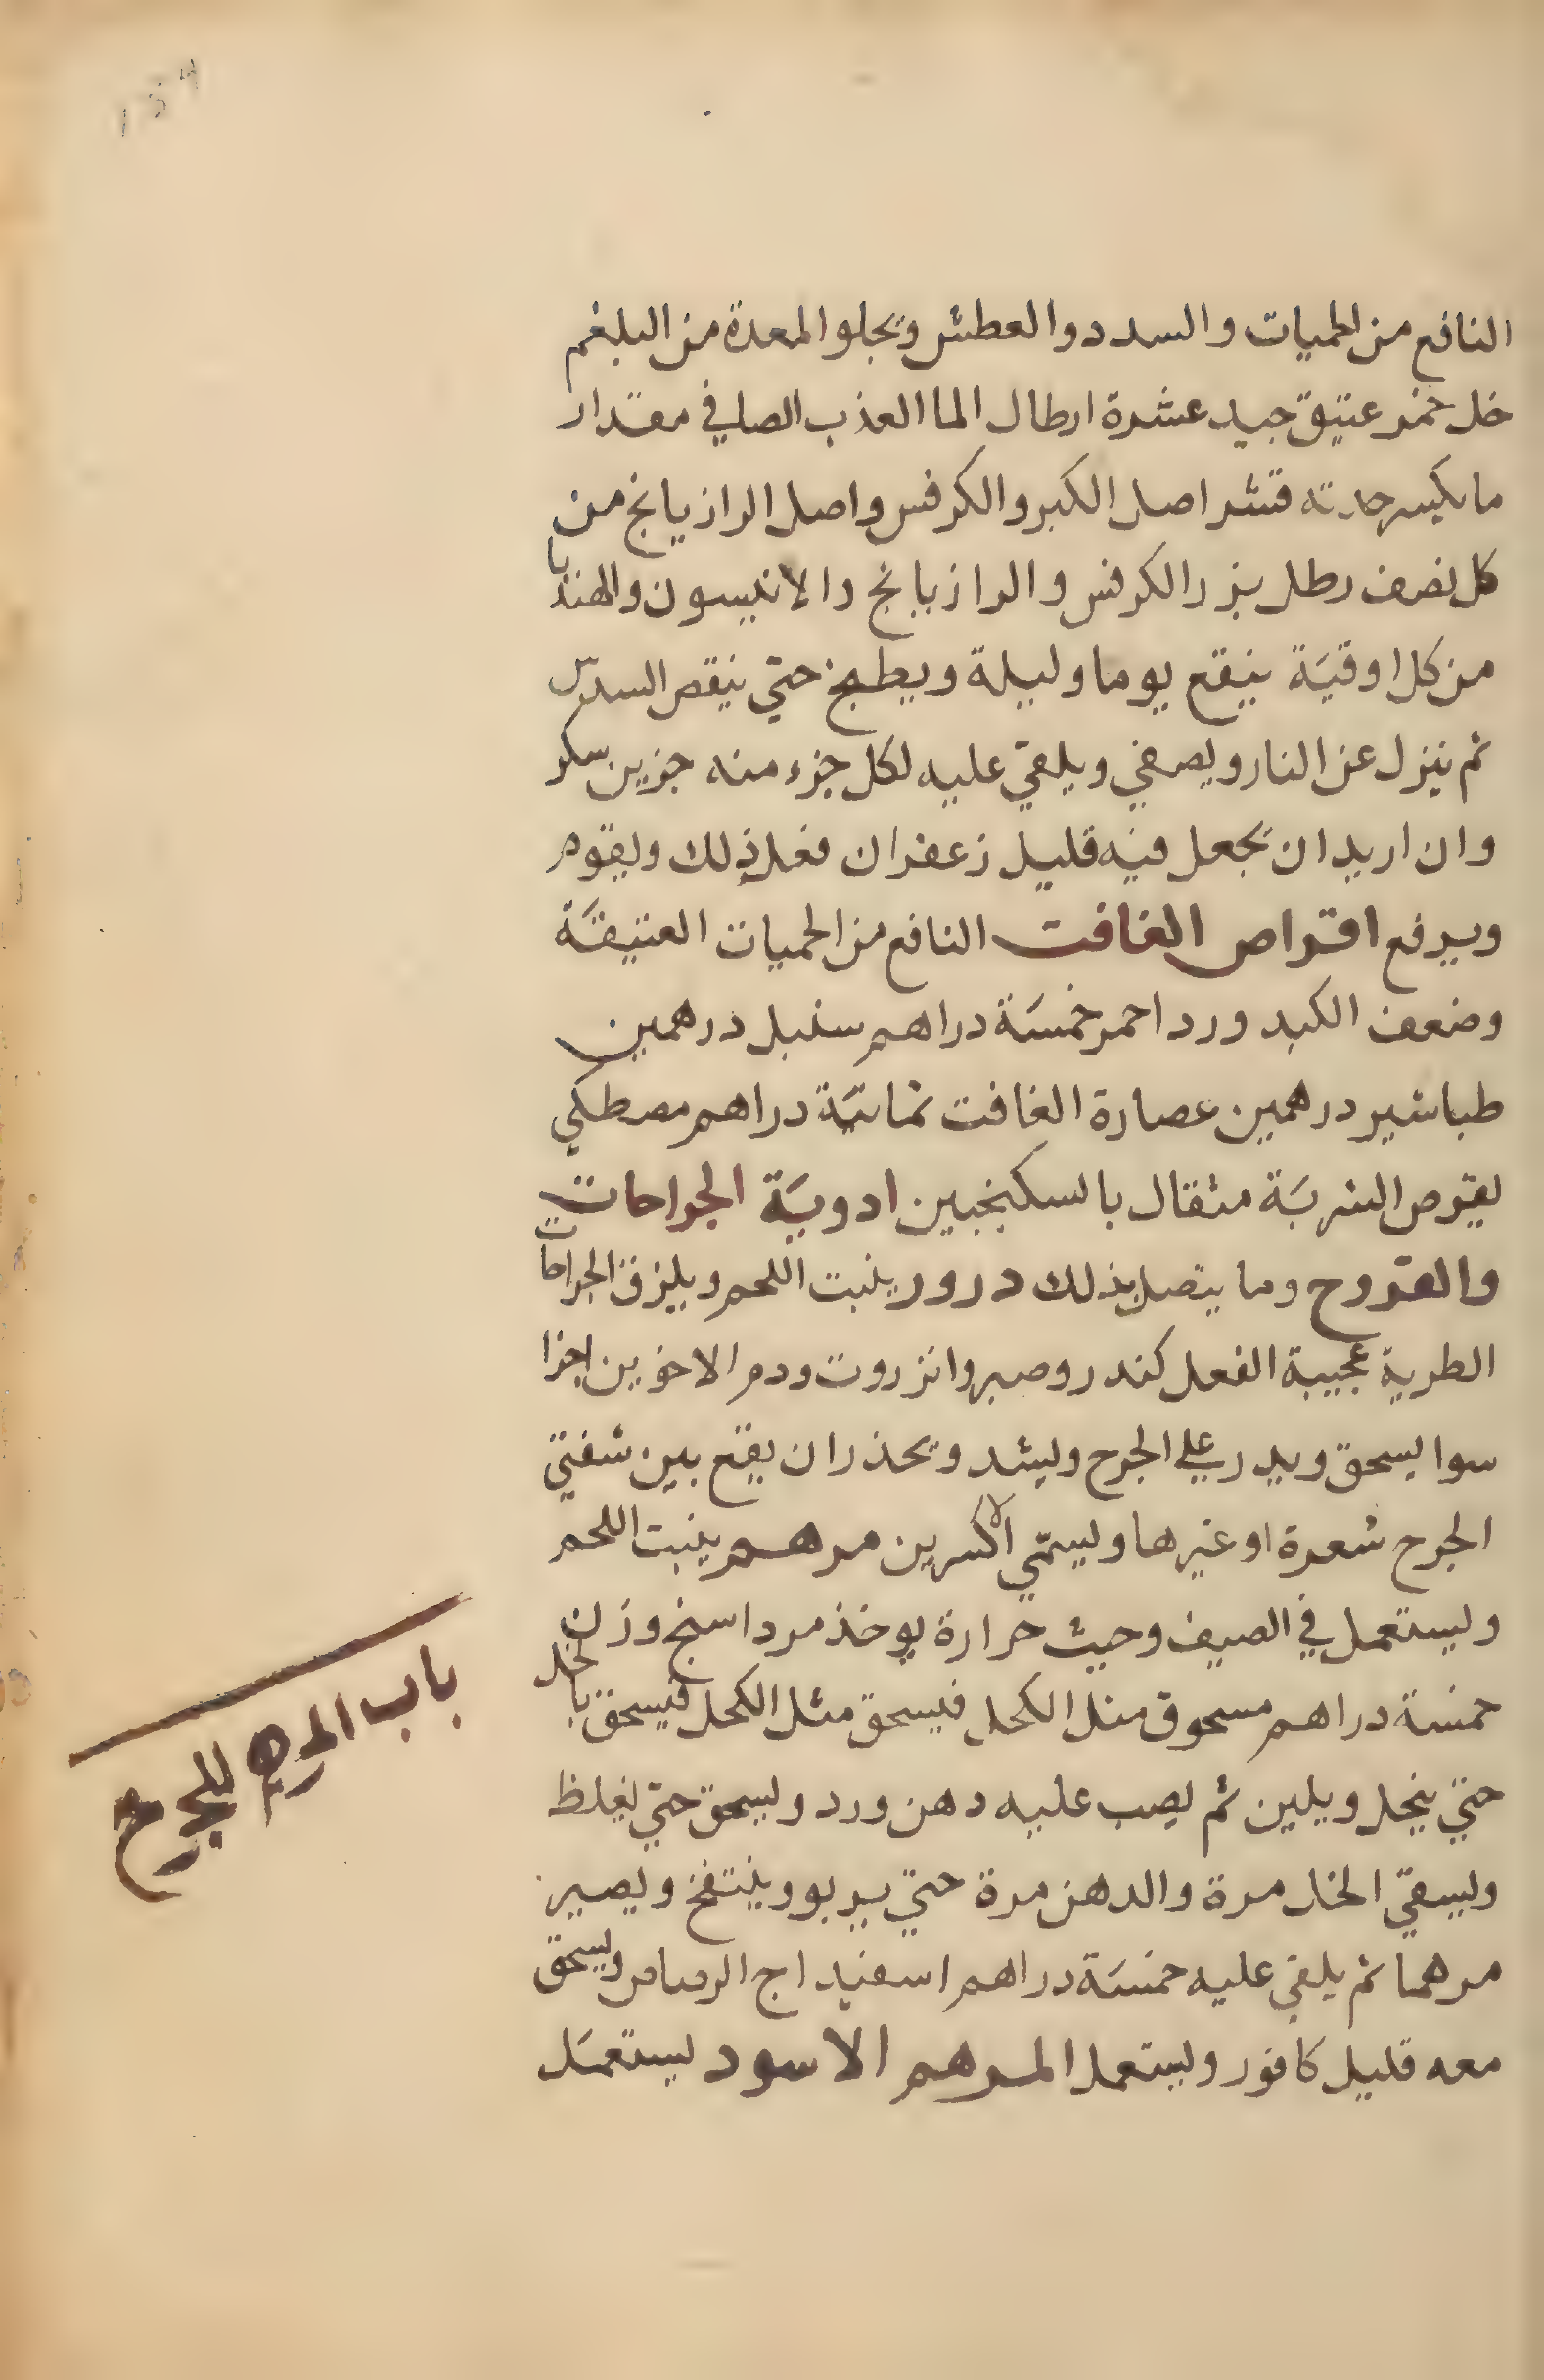 النافع من الحميات والسدد والعطش وتجلو المعدة من البلغم
خل خمر عتيق جيد عشرة ارطال الما العذب الصافي مقدار
ما يكسر حدته قشر اصل الكبر والكرفس واصل الرازيانج من
كل نصف رطل بزر الكرفس والرازيانج والانيسون والهندبا
من كل اوقية ينقع يوما وليلة ويطبخ حتي ينقص السدس
ثم ينزل عن النار ويصفي ويلقي عليه لكل جزء منه جزين سكر
وان اريد ان يجعل فيه قليل زعفران فعل ذلك ويقوم
ويرفع اقراص الغافت النافع من الحميات العتيقة
وضعف الكبد ورد احمر خمسة دراهم سنبل درهمين
طباشير درهمين عصارة الغافت ثمانية دراهم مصطكي
يقرص الشربة مثقال بالسكنجبين ادوية الجراحات
والقروح وما يتصل بذلك درور ينبت اللحم ويلزق الجراحات
الطرية عجيبة الفعل كندر وصبر وانزروت ودم الاخوين اجزا
سوا يسحق ويدر علي الجرح ويشد ويحذر ان يقع بين شفتي
الجرح شعرة او غيرها ويسمي الاكسرين مرهم ينبت اللحم
ويستعمل في الصيف وحيث حرارة يوخذ مرداسنج وزن
خمسة دراهم مسحوق مثل الكحل فيسحق مثل الكحل فيسحق بالخل
حتي ينحل ويلين ثم يصب عليه دهن ورد ويسحق حتي يغلظ
ويسقي الخل مرة والدهن مرة حتي يربو وينتفخ ويصير
مرهما ثم يلقي عليه خمسة دراهم اسفيداج الرصاص ويسحق
معه قليل كافور ويستعمل المرهم الاسود يستعمل
باب المرهم للجرح